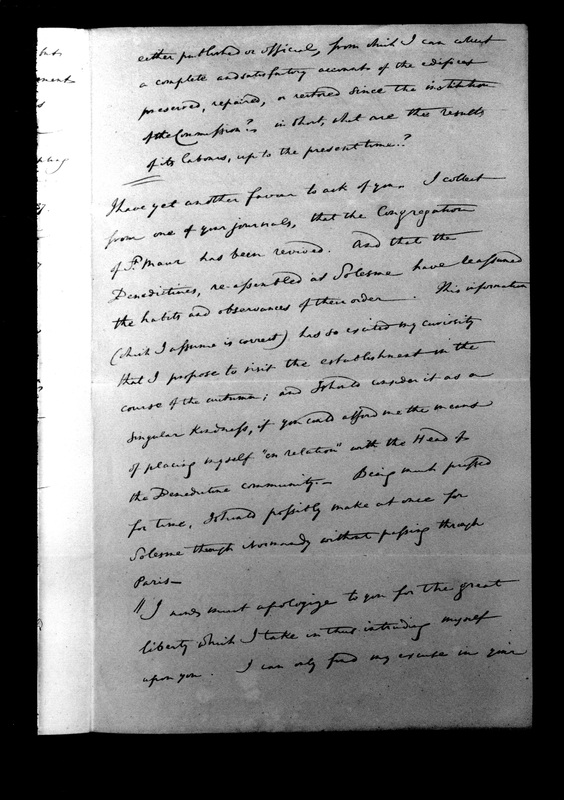 either published or official, from which I can collect
a complete and satisfactory account of the edifices
preserved, repaired, or restored since the institution
of the Commission? in short, what are the results
of its labours, up to the present time..?
I have yet another favour to ask of you. I collect
from one of your journals, that the Congregation
of St. Maur has been revived. And that the
Benedictines, re-assembled at Solesme have reassumed
the habits and observances of their order. This information
(which I assume is correct) has so excited my curiosity
that I propose to visit the establishment in the
course of the autumn; and I should consider it as a
singular kindness, if you could afford me the means
of placing myself "en relation" with the Head of
the Benedictine community. Being much pressed
for time, I should possibly make at once for
Solesme through Normandy without passing through
Paris—
"I must apologize to you for the great
liberty which I take in thus intruding myself
upon you. I can only find my excuse in your
ment